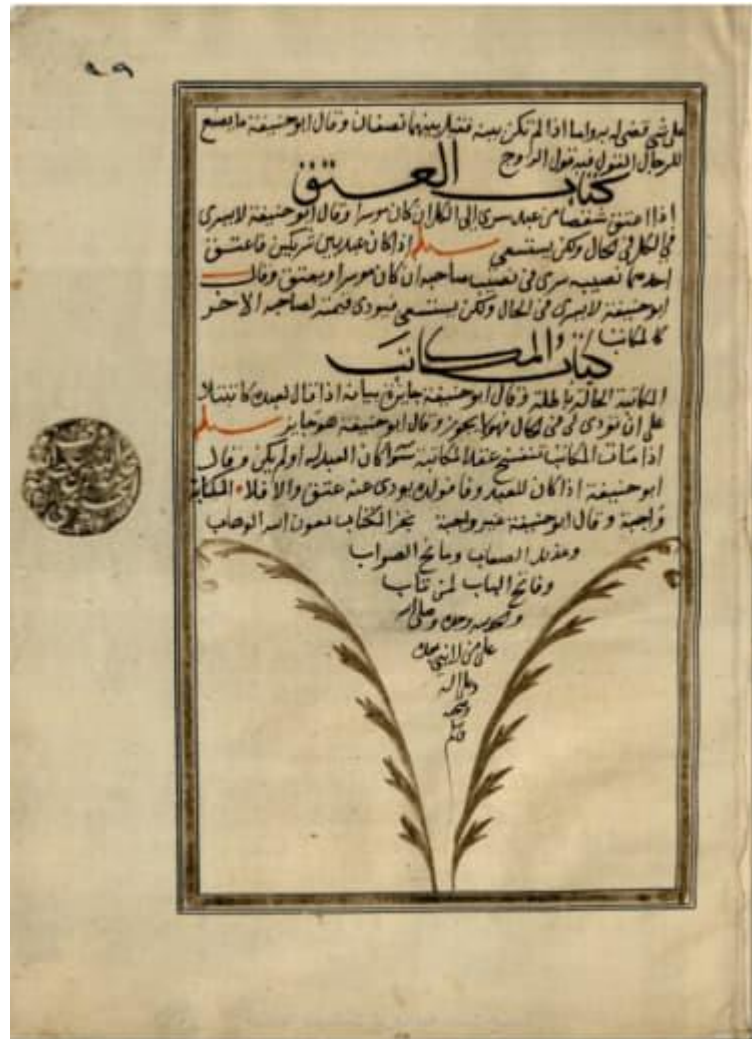 ٩٩
على شي قضى له به واما اذا لم تكن بينة فتبار بينهما نصفان وقال ابو حنيفة ما يصنع
للرجال القول فيه قول الزوج
كتاب العتق
اذا اعتق شقصا من عبد سرى الى الكل ان كان موسرا وقال ابو حنيفة لا يسرى
في الكل في الحال ولكن يستسعى مسئلة اذا كان عبد بين شريكين فاعتق
احدهما نصيبه سرى في نصيب صاحبه ان كان موسرا ويعتق وقال
ابو حنيفة لا يسرى في الحال ولكن يستسعى فيودى قيمته لصاحبه الاخر
كالمكاتب
كتاب المكاتب
المكاتبة الحالة باطلة وقال ابو حنيفة جايزة بيانه اذا قال لعبده كاتبتك
على ان تودى لي في الحال فهو لا يجوز وقال ابو حنيفة هو جايز مسئلة
اذا مات المكاتب تنفسخ عقد المكاتبة سوا كان العبد له او لم يكن وقال
ابو حنيفة اذا كان للعبد وفا فولده يودى عنه عتق والا فلا المكاتبة
واجبة وقال ابو حنيفة غير واجبة نجز الكتاب بعون الله الوهاب
ومذلل الصعاب ومانح الصواب
وفاتح الباب لمن تاب
والحمد لله وحده وصلى الله
على من لا نبي بعده
وعلى اله
وصحبه
وسلم